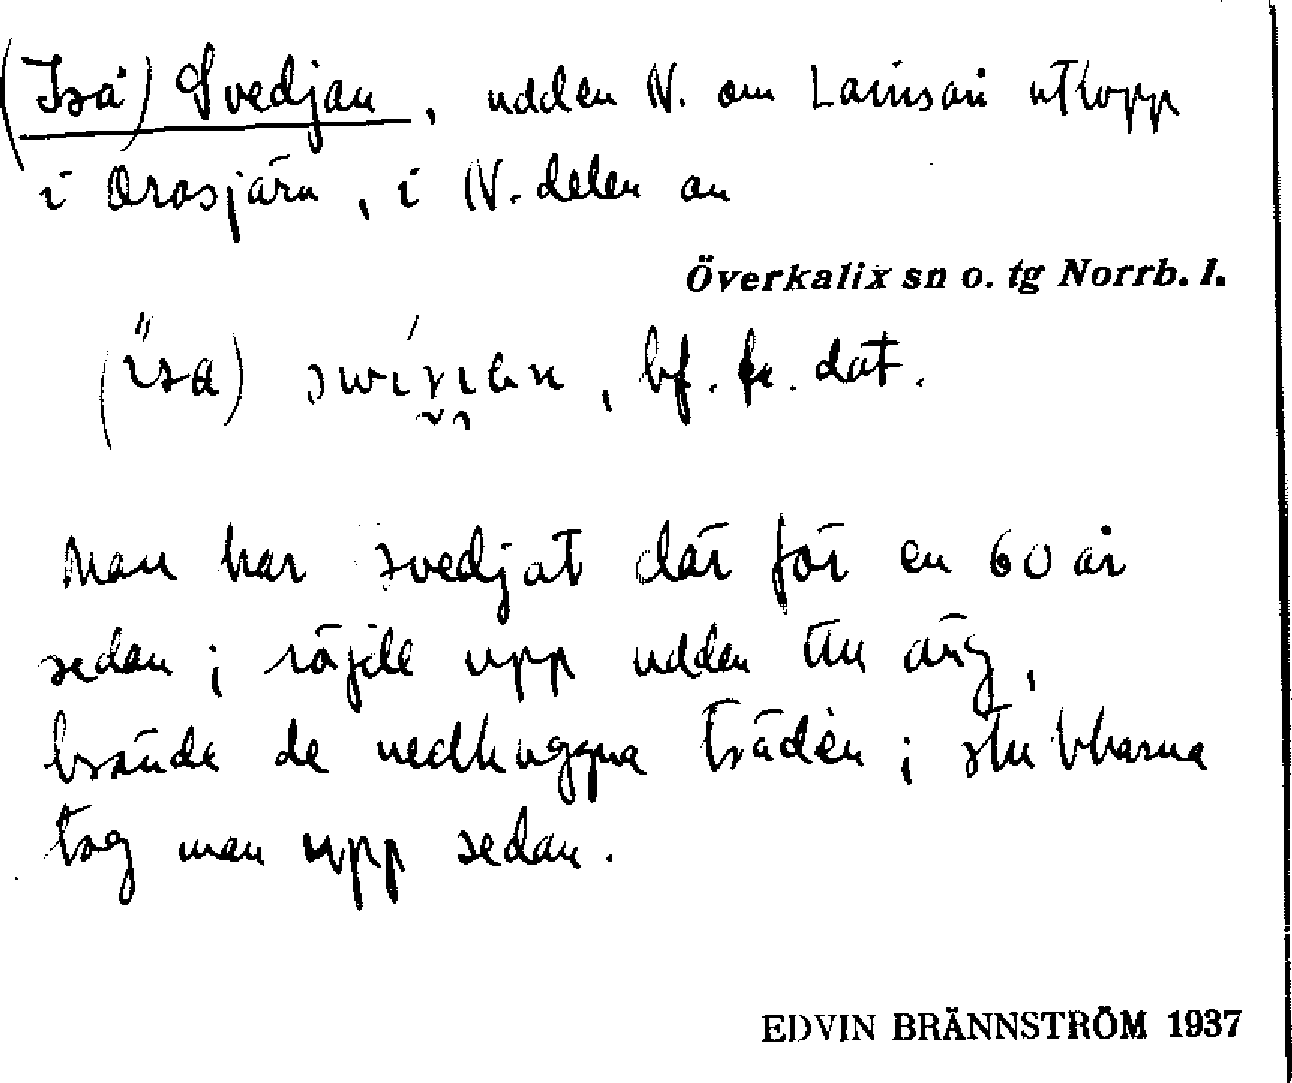 (Isa) Svedjan, udden N. om Lainsåns utlopp
i Orasjärv, i N. delen av
Överkalix sn o. tg Norrb. l.
bf. fr. dat.
Man har svedjat där för en 60 år
sedan; röjde upp udden till äng,
brände de nedhuggna träden; stubbarna
tog man upp sedan.
EDVIN BRÄNNSTRÖM 1937